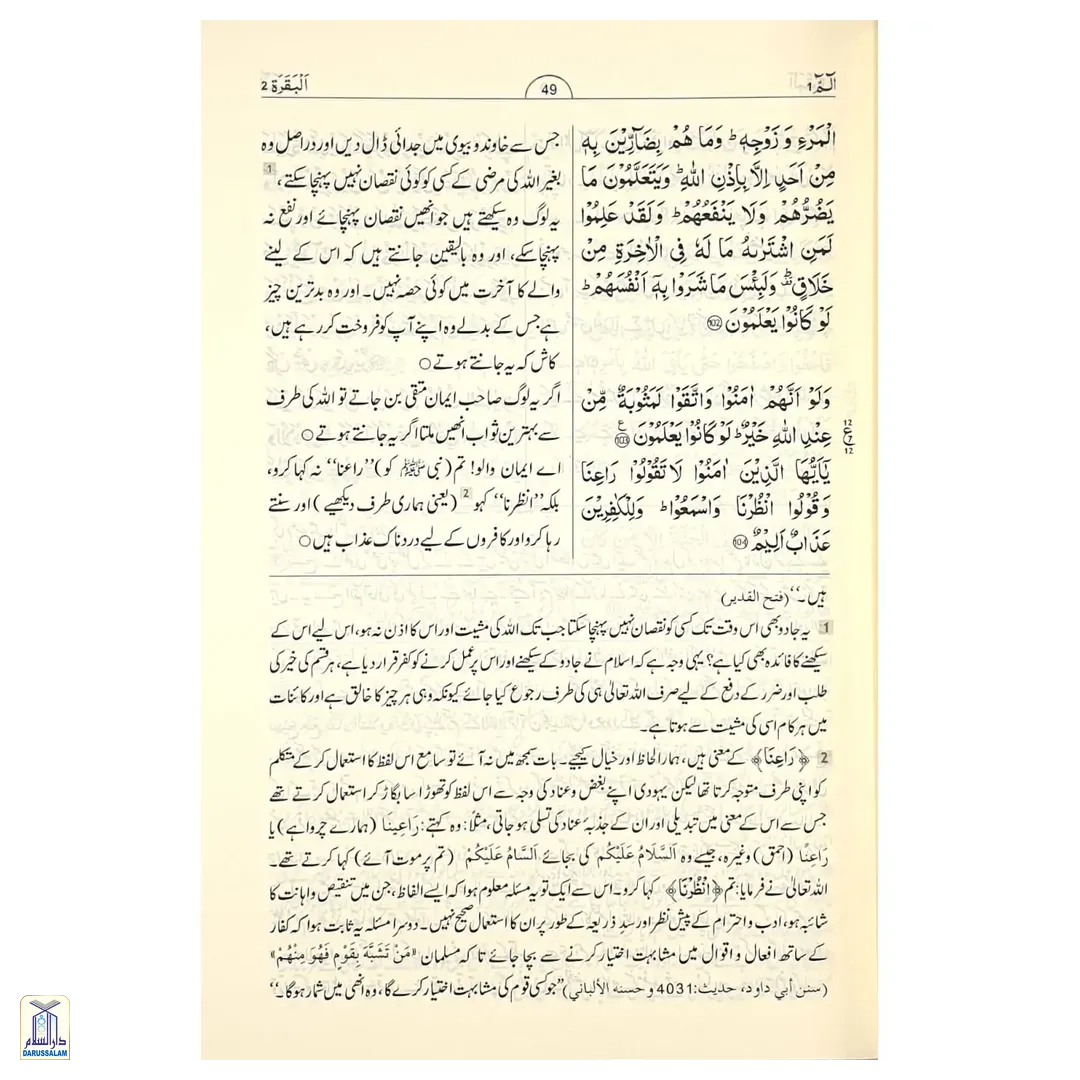 الٓـمّٓ 1
49
اَلْبَقَرَة 2
الْمَرْءِ وَ زَوْجِهٖ ؕ وَمَا هُمْ بِضَآرِّيْنَ بِهٖ
مِنْ اَحَدٍ اِلَّا بِاِذْنِ اللّٰهِ ؕ وَيَتَعَلَّمُوْنَ مَا
يَضُرُّهُمْ وَلَا يَنْفَعُهُمْ ؕ وَلَقَدْ عَلِمُوْا
لَمَنِ اشْتَرٰىهُ مَا لَهٗ فِى الْاٰخِرَةِ مِنْ
خَلَاقٍ ؕ وَلَبِئْسَ مَا شَرَوْا بِهٖۤ اَنْفُسَهُمْ ؕ
لَوْ كَانُوْا يَعْلَمُوْنَ 102
وَلَوْ اَنَّهُمْ اٰمَنُوْا وَاتَّقَوْا لَمَثُوْبَةٌ مِّنْ
عِنْدِ اللّٰهِ خَيْرٌ ؕ لَوْ كَانُوْا يَعْلَمُوْنَ 103
12
ع
12
يٰۤاَيُّهَا الَّذِيْنَ اٰمَنُوْا لَا تَقُوْلُوْا رَاعِنَا
وَ قُوْلُوا انْظُرْنَا وَاسْمَعُوْا ؕ وَلِلْكٰفِرِيْنَ
عَذَابٌ اَلِيْمٌ 104
جس سے خاوند و بیوی میں جدائی ڈال دیں اور دراصل وہ
بغیر اللہ کی مرضی کے کسی کو کوئی نقصان نہیں پہنچا سکتے، 1
یہ لوگ وہ سیکھتے ہیں جو انھیں نقصان پہنچائے اور نفع نہ
پہنچا سکے، اور وہ بالیقین جانتے ہیں کہ اس کے لینے
والے کا آخرت میں کوئی حصہ نہیں۔ اور وہ بدترین چیز
ہے جس کے بدلے وہ اپنے آپ کو فروخت کر رہے ہیں،
کاش کہ یہ جانتے ہوتے ○
اگر یہ لوگ صاحب ایمان متقی بن جاتے تو اللہ کی طرف
سے بہترین ثواب انھیں ملتا اگر یہ جانتے ہوتے ○
اے ایمان والو! تم (نبی ﷺ کو) ”راعنا“ نہ کہا کرو،
بلکہ ”انظرنا“ کہو 2 (یعنی ہماری طرف دیکھیے) اور سنتے
رہا کرو اور کافروں کے لیے دردناک عذاب ہیں ○
ہیں۔“ (فتح القدیر)
1 یہ جادو بھی اس وقت تک کسی کو نقصان نہیں پہنچا سکتا جب تک اللہ کی مشیت اور اس کا اذن نہ ہو، اس لیے اس کے
سیکھنے کا فائدہ بھی کیا ہے؟ یہی وجہ ہے کہ اسلام نے جادو کے سیکھنے اور اس پر عمل کرنے کو کفر قرار دیا ہے، ہر قسم کی خیر کی
طلب اور ضرر کے دفع کے لیے صرف اللہ تعالیٰ ہی کی طرف رجوع کیا جائے کیونکہ وہی ہر چیز کا خالق ہے اور کائنات
میں ہر کام اسی کی مشیت سے ہوتا ہے۔
2 ﴿رَاعِنَا﴾ کے معنی ہیں، ہمارا لحاظ اور خیال کیجیے۔ بات سمجھ میں نہ آئے تو سامع اس لفظ کا استعمال کر کے متکلم
کو اپنی طرف متوجہ کرتا تھا لیکن یہودی اپنے بغض و عناد کی وجہ سے اس لفظ کو تھوڑا سا بگاڑ کر استعمال کرتے تھے
جس سے اس کے معنی میں تبدیلی اور ان کے جذبۂ عناد کی تسلی ہو جاتی، مثلًا: وہ کہتے: رَاعِينَا (ہمارے چرواہے) یا
رَاعِنًا (احمق) وغیرہ، جیسے وہ اَلسَّلَامُ عَلَيْكُم کی بجائے اَلسَّامُ عَلَيْكُمْ (تم پر موت آئے) کہا کرتے تھے۔
اللہ تعالیٰ نے فرمایا: تم ﴿انْظُرْنَا﴾ کہا کرو۔ اس سے ایک تو یہ مسئلہ معلوم ہوا کہ ایسے الفاظ، جن میں تنقیص و اہانت کا
شائبہ ہو، ادب و احترام کے پیش نظر اور سدِ ذریعہ کے طور پر ان کا استعمال صحیح نہیں۔ دوسرا مسئلہ یہ ثابت ہوا کہ کفار
کے ساتھ افعال و اقوال میں مشابہت اختیار کرنے سے بچا جائے تاکہ مسلمان «مَنْ تَشَبَّهَ بِقَوْمٍ فَهُوَ مِنْهُمْ»
(سنن أبي داود، حدیث: 4031 و حسنه الألباني) ”جو کسی قوم کی مشابہت اختیار کرے گا، وہ انھی میں شمار ہوگا۔“
دارالسلام
DARUSSALAM